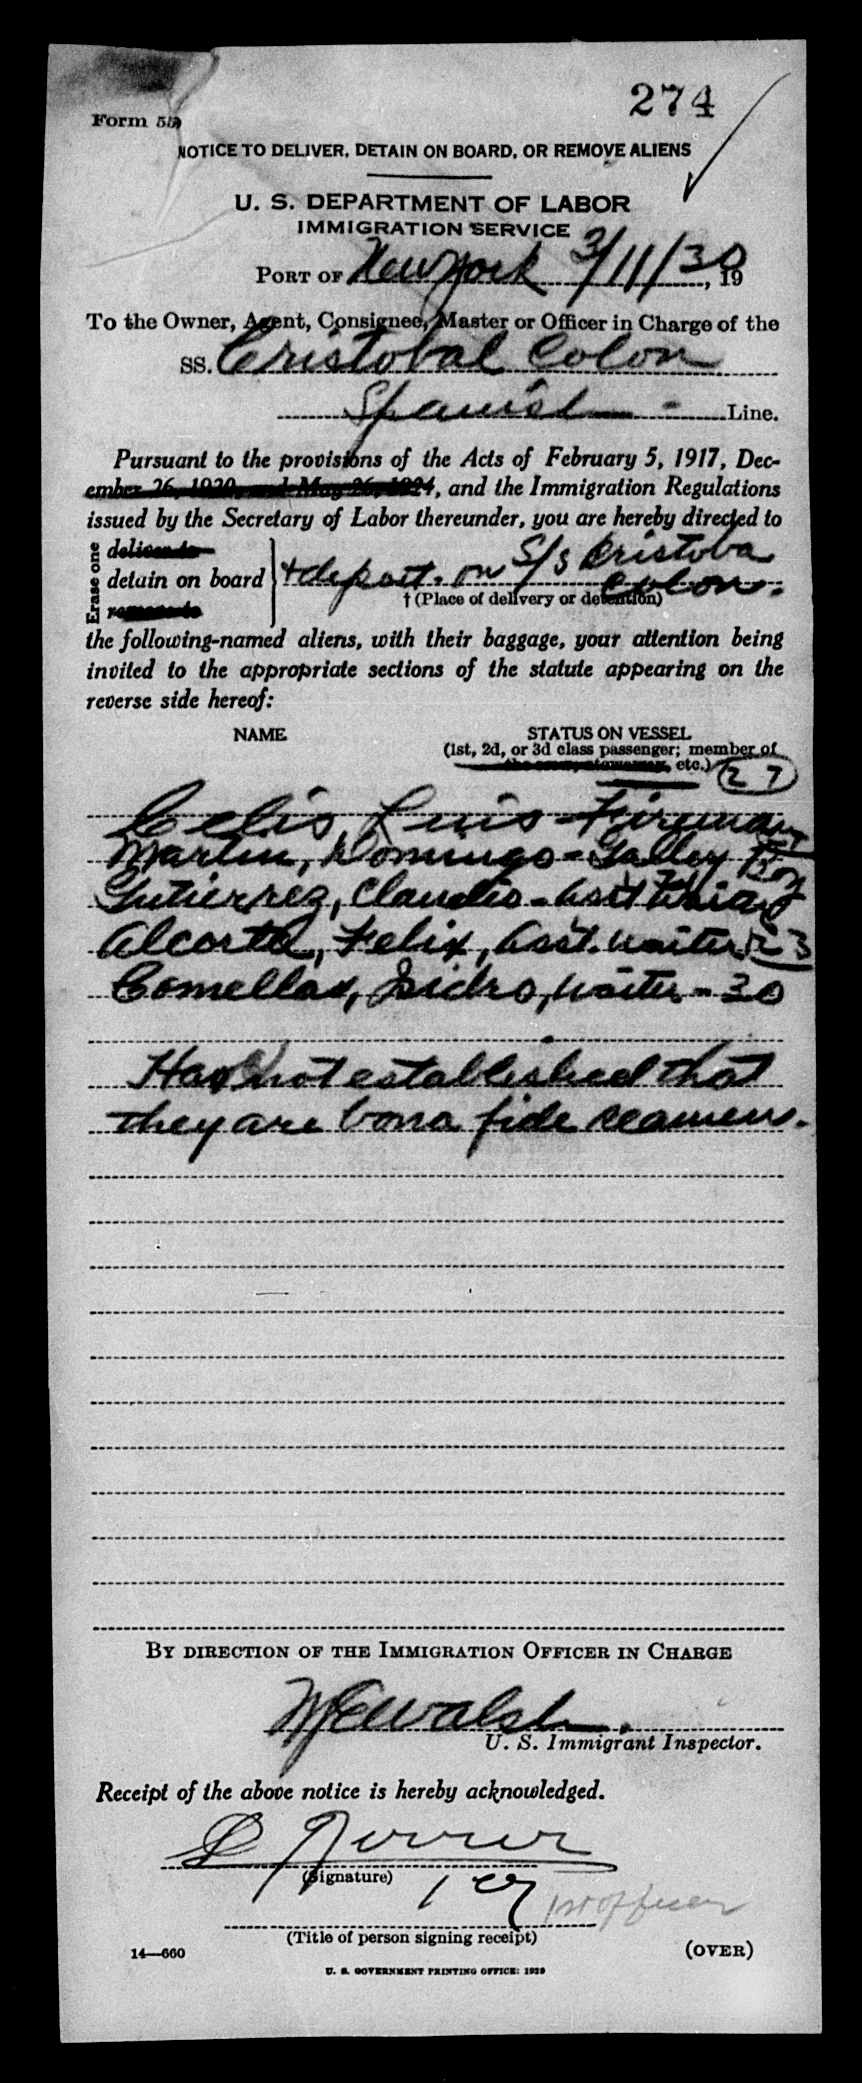 274
Form 550
NOTICE TO DELIVER, DETAIN ON BOARD, OR REMOVE ALIENS
U. S. DEPARTMENT OF LABOR
IMMIGRATION SERVICE
PORT OF New York 3/11/30, 19
To the Owner, Agent, Consignee, Master or Officer in Charge of the
SS. Cristobal Colon
Spanish Line.
Pursuant to the provisions of the Acts of February 5, 1917, Dec-
ember 26, 1920, and May 26, 1924, and the Immigration Regulations
issued by the Secretary of Labor thereunder, you are hereby directed to
Erase one
deliver to
detain on board
remove to
+ deport. on S/S Cristobal
Colon.
† (Place of delivery or detention)
the following-named aliens, with their baggage, your attention being
invited to the appropriate sections of the statute appearing on the
reverse side hereof:
NAME STATUS ON VESSEL
(1st, 2d, or 3d class passenger; member of
the crew, stowaway, etc.) 27
Celis, Luis - Fireman
Martin, Domingo - Galley Boy
Gutierrez, Claudio - asst waiter
Alcorta, Felix, asst. waiter 23
Comellas, Isidro, waiter - 30
Has not established that
they are bona fide seamen.
BY DIRECTION OF THE IMMIGRATION OFFICER IN CHARGE
U. S. Immigrant Inspector.
Receipt of the above notice is hereby acknowledged.
(Signature)
1st officer
(Title of person signing receipt)
14—660 (OVER)
U. S. GOVERNMENT PRINTING OFFICE: 1929